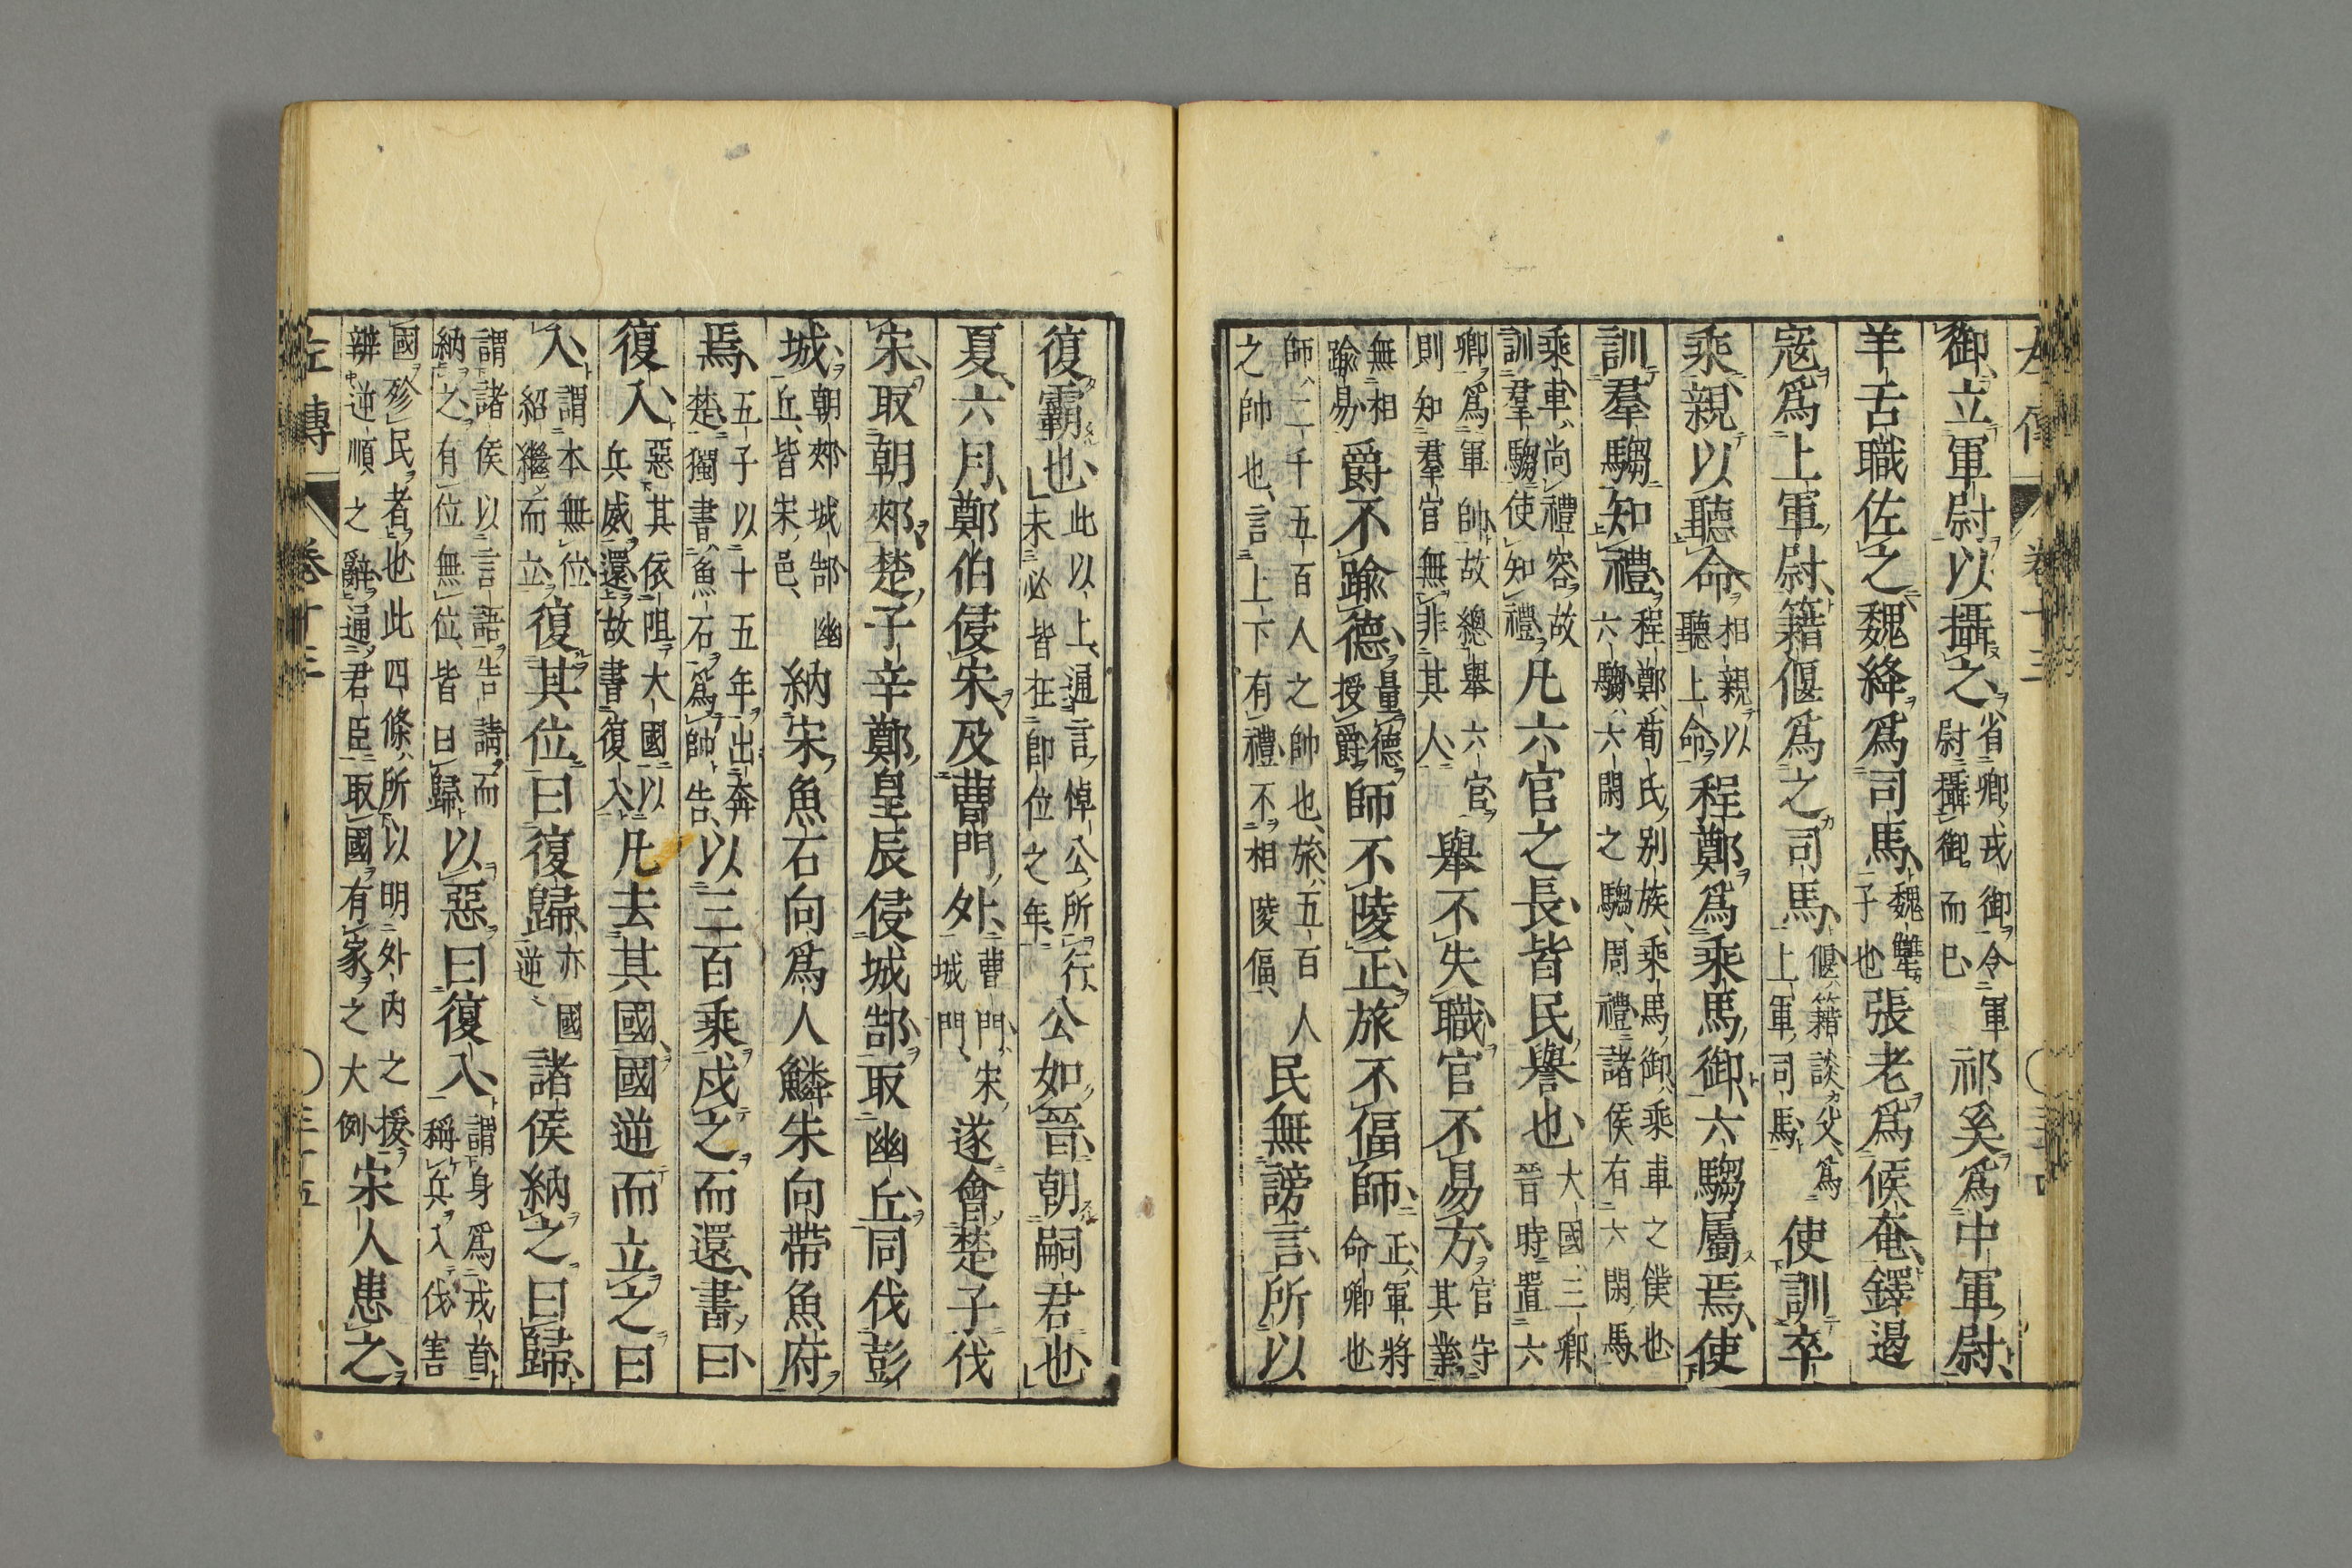 卷十三
御立軍尉以攝之省卿戎御令軍尉攝御而已祁奚爲中軍尉
羊舌職佐之魏絳爲司馬魏犨子也張老爲候奄鐸遏
寇爲上軍尉籍偃爲之司馬偃籍談父爲上軍司馬使訓卒
乘親以聽命相親以聽上命程鄭爲乘馬御六騶屬焉使
訓羣騶知禮程鄭荀氏別族乘馬御乘車之僕也六騶六閑之騶周禮諸侯有六閑馬
乘車尚禮容故訓羣騶使知禮凡六官之長皆民譽也大國三卿晉時置六
卿爲軍帥故總舉六官則知羣官無非其人舉不失職官不易方官守其業
無相踰易爵不踰德量德授爵師不陵正旅不偪師正軍將命卿也
師二千五百人之帥也旅五百人之帥也言上下有禮不相陵偪民無謗言所以
復霸也此以上通言悼公所行未必皆在即位之年公如晉朝嗣君也
夏六月鄭伯侵宋及曹門外曹門宋城門遂會楚子伐
宋取朝郟楚子辛鄭皇辰侵城郜取幽丘同伐彭
城朝郟城郜幽丘皆宋邑納宋魚石向爲人鱗朱向帶魚府
焉五子以十五年出奔楚獨書魚石爲帥告以三百乘戍之而還書曰
復入惡其依阻大國以兵威還故書復入凡去其國國逆而立之曰
入謂本無位紹繼而立復其位曰復歸亦國逆諸侯納之曰歸
謂諸侯以言語告請而納之有位無位皆曰歸以惡曰復入謂身爲戎首稱兵入伐害
國殄民者也此四條所以明外內之援辨逆順之辭通君臣取國有家之大例宋人患之
左傳 卷十三 三十五